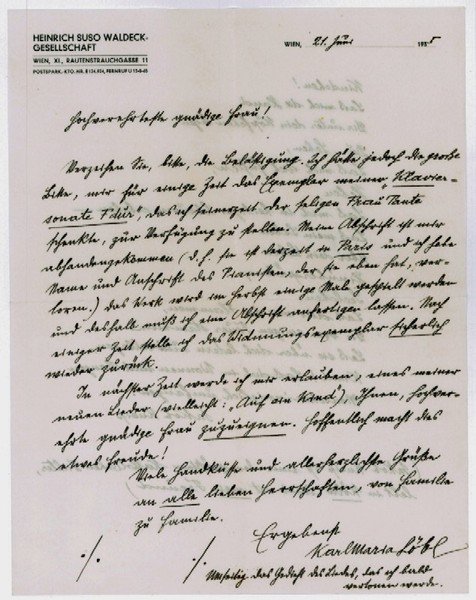 HEINRICH SUSO WALDECK-
GESELLSCHAFT
WIEN, XI., RAUTENSTRAUCHGASSE 11
POSTSPARK.-KTO. NR. E 124.524, FERNRUF U 13-0-45
WIEN, 21. Juni 1935
Hochverehrteste gnädige Frau!
Verzeihen Sie, bitte, die Belästigung. Ich hätte jedoch die große
Bitte, mir für einige Zeit das Exemplar meiner „Klavier-
sonate F dur", das ich seinerzeit der seligen Frau Tante
schenkte, zur Verfügung zu stellen. Meine Abschrift ist mir
abhandengekommen (d. h. sie ist derzeit in Paris und ich habe
Name und Anschrift des Pianisten, der sie eben hat, ver-
loren.) Das Werk wird im Herbst einige Male gespielt werden
und deshalb muß ich eine Abschrift anfertigen lassen. Nach
einiger Zeit stelle ich das Widmungsexemplar sicherlich
wieder zurück.
In nächster Zeit werde ich mir erlauben, eines meiner
neuen Lieder (vielleicht: „Auf ein Kind"), Ihnen, hochver-
ehrte gnädige Frau zuzueignen. Hoffentlich macht das
etwas Freude!
Viele Handküsse und allerherzlichste Grüße
an alle lieben Herrschaften, von Familie
zu Familie.
Ergebenst
Karl Maria Löbl
Umseitig das Gedicht des Liedes, das ich bald
vertonen werde.